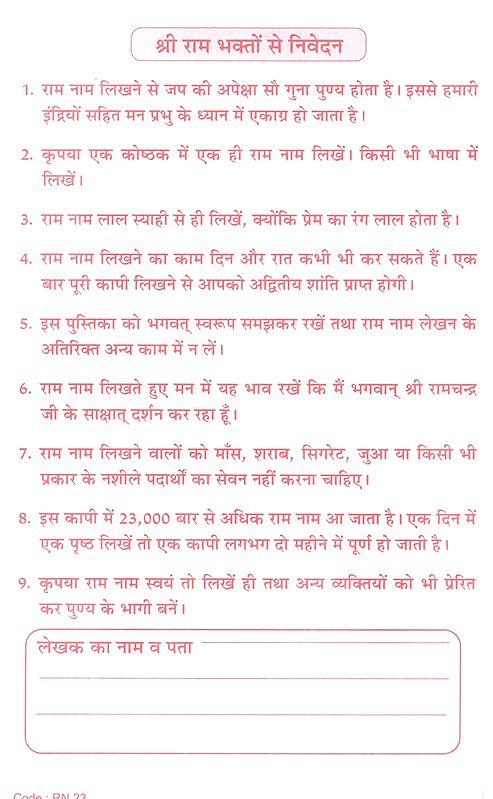 श्री राम भक्तों से निवेदन
1. राम नाम लिखने से जप की अपेक्षा सौ गुना पुण्य होता है। इससे हमारी
इंद्रियों सहित मन प्रभु के ध्यान में एकाग्र हो जाता है।
2. कृपया एक कोष्ठक में एक ही राम नाम लिखें। किसी भी भाषा में
लिखें।
3. राम नाम लाल स्याही से ही लिखें, क्योंकि प्रेम का रंग लाल होता है।
4. राम नाम लिखने का काम दिन और रात कभी भी कर सकते हैं। एक
बार पूरी कापी लिखने से आपको अद्वितीय शांति प्राप्त होगी।
5. इस पुस्तिका को भगवत् स्वरूप समझकर रखें तथा राम नाम लेखन के
अतिरिक्त अन्य काम में न लें।
6. राम नाम लिखते हुए मन में यह भाव रखें कि मैं भगवान् श्री रामचन्द्र
जी के साक्षात् दर्शन कर रहा हूँ।
7. राम नाम लिखने वालों को माँस, शराब, सिगरेट, जुआ या किसी भी
प्रकार के नशीले पदार्थों का सेवन नहीं करना चाहिए।
8. इस कापी में 23,000 बार से अधिक राम नाम आ जाता है। एक दिन में
एक पृष्ठ लिखें तो एक कापी लगभग दो महीने में पूर्ण हो जाती है।
9. कृपया राम नाम स्वयं तो लिखें ही तथा अन्य व्यक्तियों को भी प्रेरित
कर पुण्य के भागी बनें।
लेखक का नाम व पता
Code : RN 23